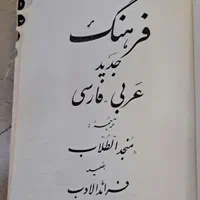 فرهنگ
جدید
عربی - فارسی
ترجمهٔ
منجد الطلاب
بضمیمه
فرائد الادب